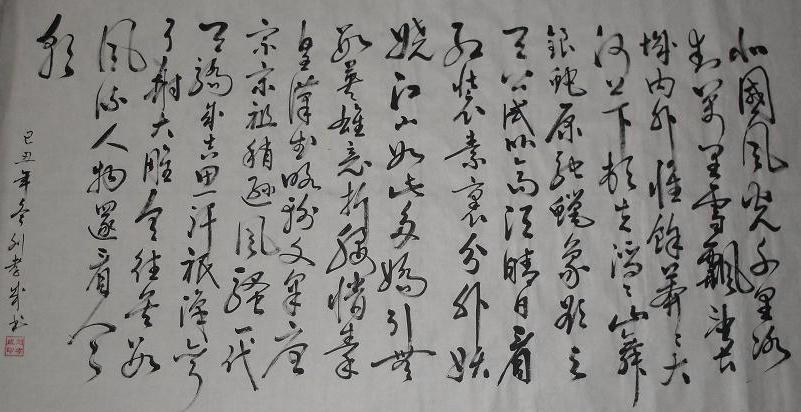 北國風光千里冰
封萬里雪飄望長
城内外惟餘莽〻大
河上下頓失滔〻山舞
銀蛇原馳蠟象欲與
天公試比高須晴日看
红裝素裹分外妖
嬈江山如此多嬌引無
數英雄竞折腰惜秦
皇漢武略輸文采唐
宗宋祖稍遜風騷一代
天驕成吉思汗祇識彎
弓射大雕俱往矣數
風流人物還看今
朝
己丑年冬刘孝成书